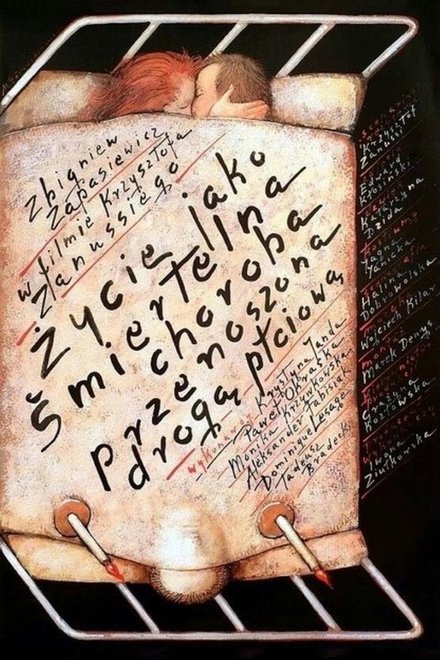 Zbigniew
Zapasiewicz
w filmie Krzysztofa
Zanussiego
Życie jako
śmiertelna
choroba
przenoszona
drogą płciową
wykonawcy Krystyna Janda
Paweł Okraska
Monika Krzywkowska
Aleksander Fabisiak
Dominique Lesage
Tadeusz
Bradecki
scenariusz
Krzysztof
Zanussi
Edward
Kłosiński
Dzida
Jagna
Janicka
Halina
Dobrowolska
Wojciech Kilar
Marek Denys
Grażyna
Kozłowska
Iwona
Ziułkowska